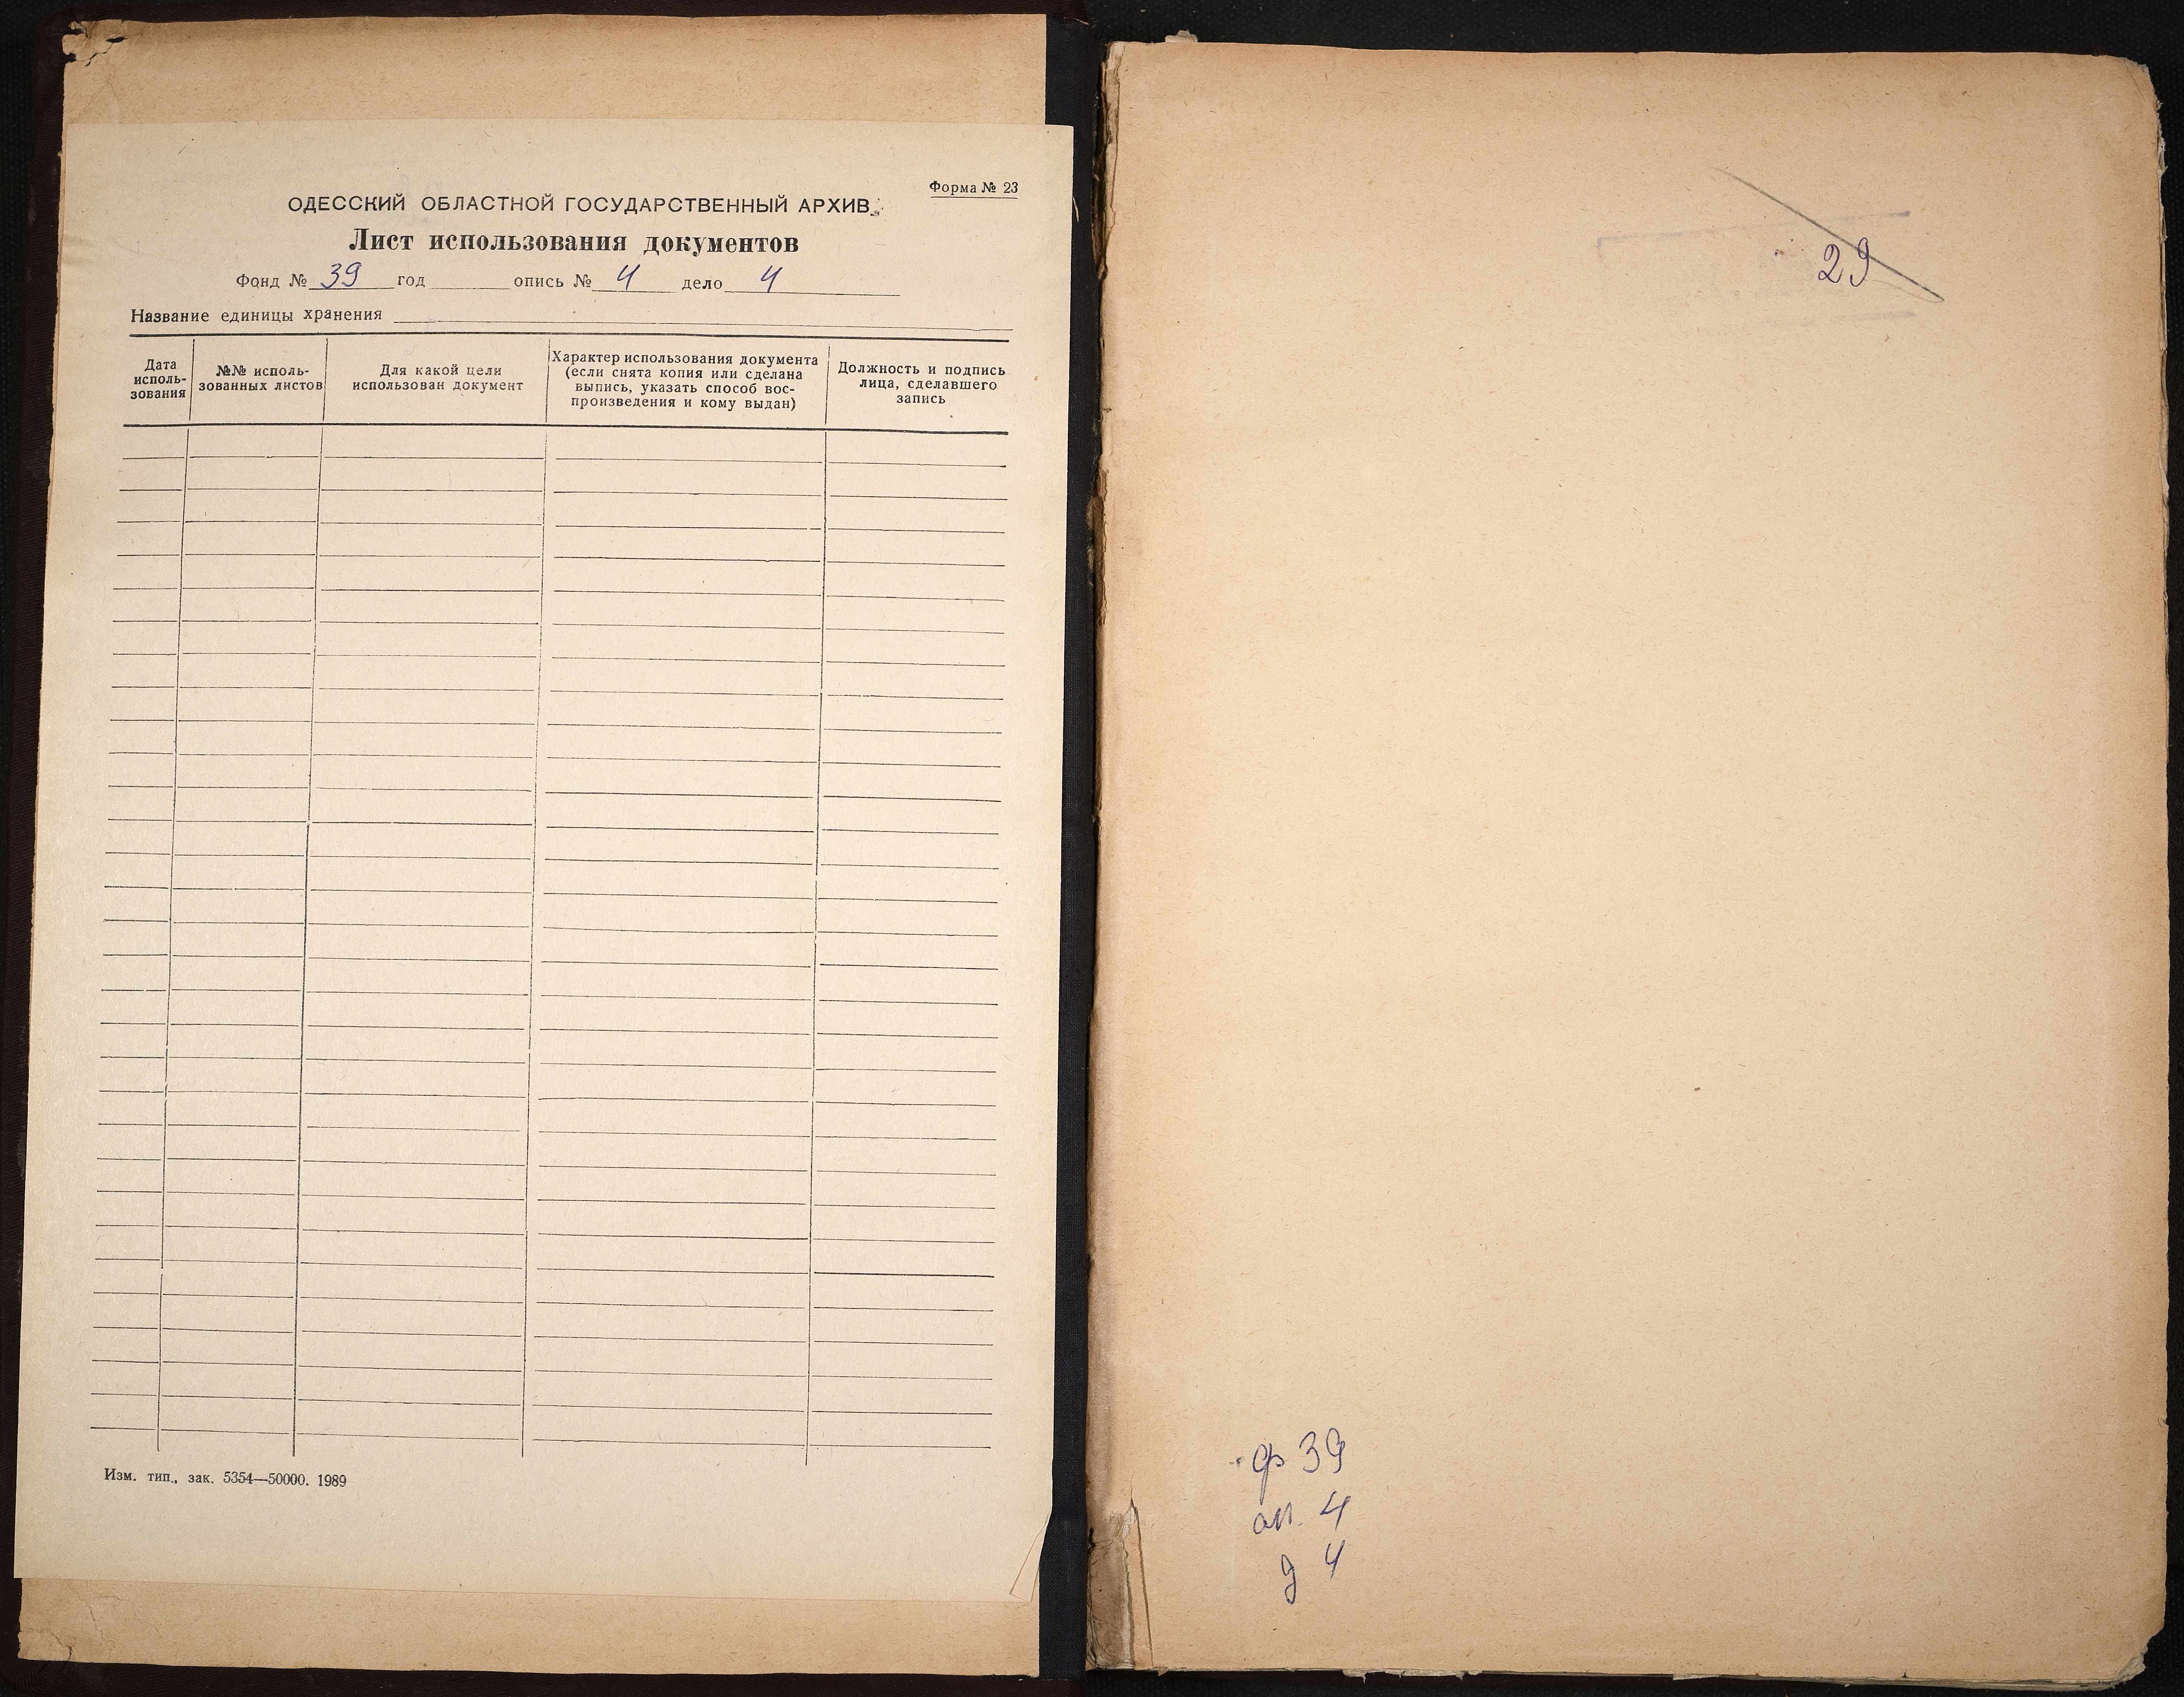 Форма № 23
ОДЕССКИЙ ОБЛАСТНОЙ ГОСУДАРСТВЕННЫЙ АРХИВ
Лист использования документов
Фонд № 39 год опись № 4 дело 4
Название единицы хранения
Дата исполь-зования
№№ исполь-зованных листов
Для какой цели использован документ
Характер использования документа (если снята копия или сделана выпись, указать способ вос-произведения и кому выдан)
Должность и подпись лица, сделавшего запись
Изм. тип., зак. 5354—50000. 1989
29
ф 39
оп. 4
д 4